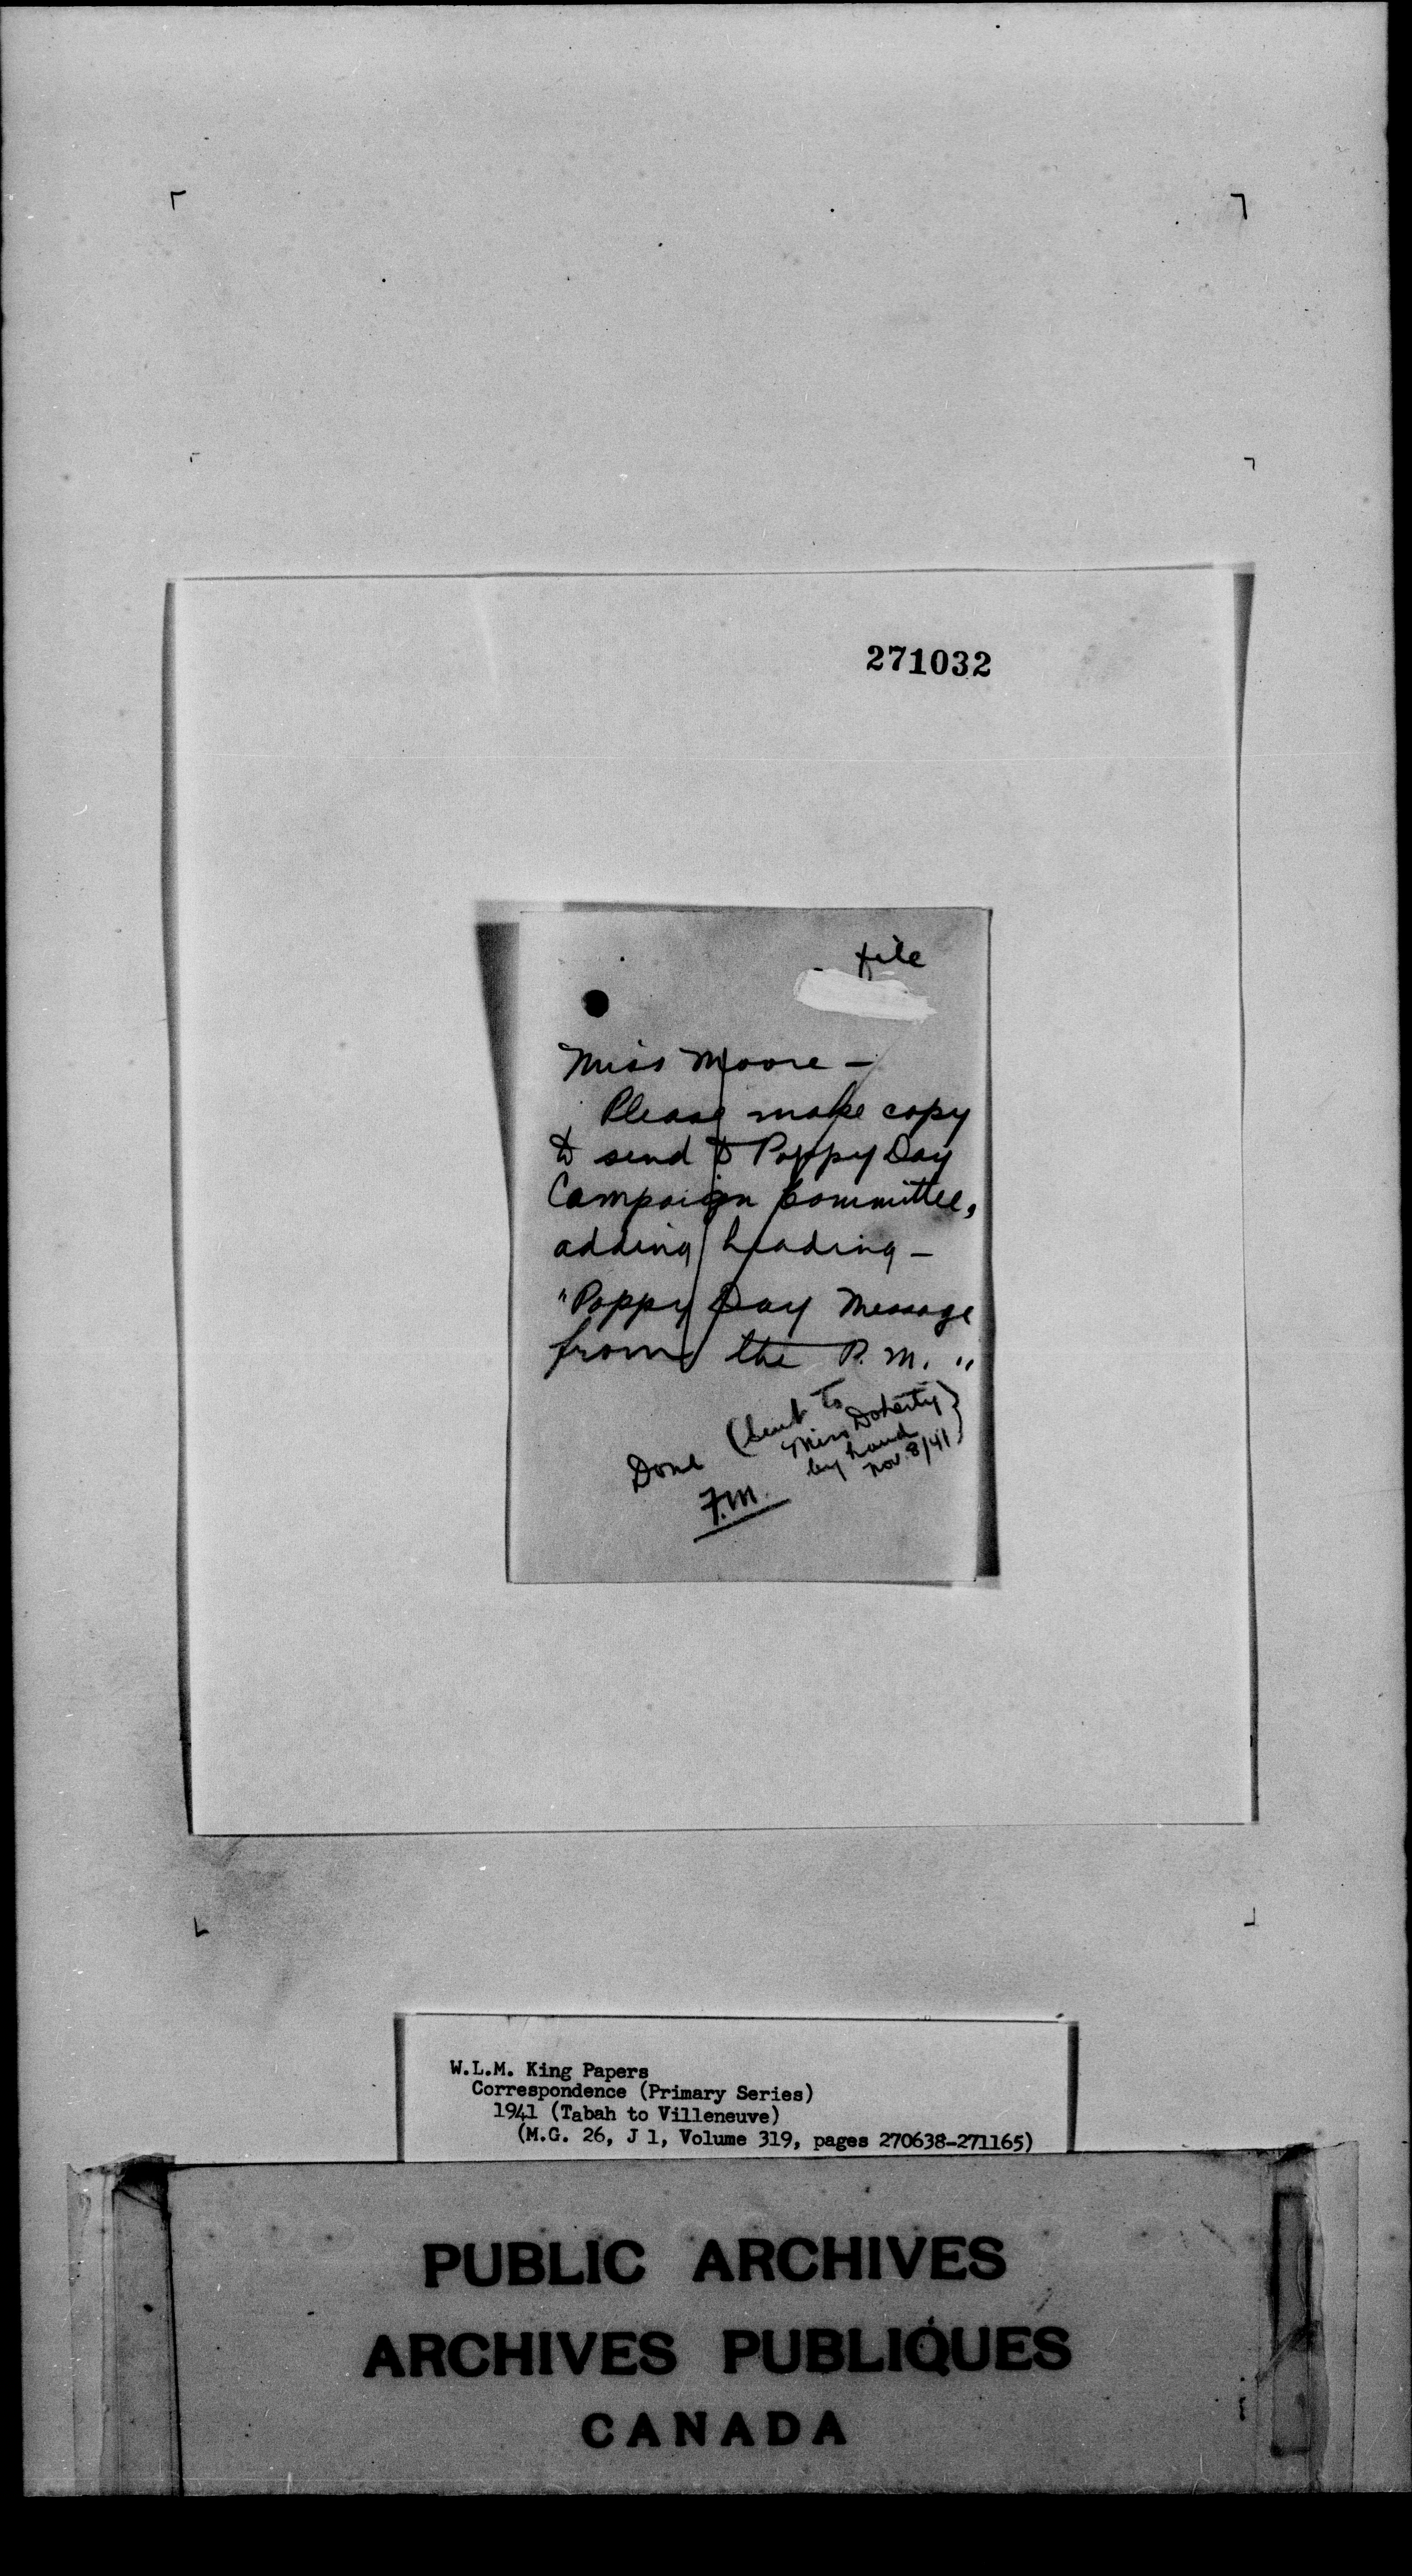 271032
file
Miss Moore -
Please make copy
to send to Poppy Day
Campaign Committee,
adding heading -
"Poppy Day Message
from the P.M."
Done
(Sent to
Miss Doherty
by hand
Nov. 8/41)
F.M.
W.L.M. King Papers
Correspondence (Primary Series)
1941 (Tabah to Villeneuve)
(M.G. 26, J 1, Volume 319, pages 270638-271165)
PUBLIC ARCHIVES
ARCHIVES PUBLIQUES
CANADA